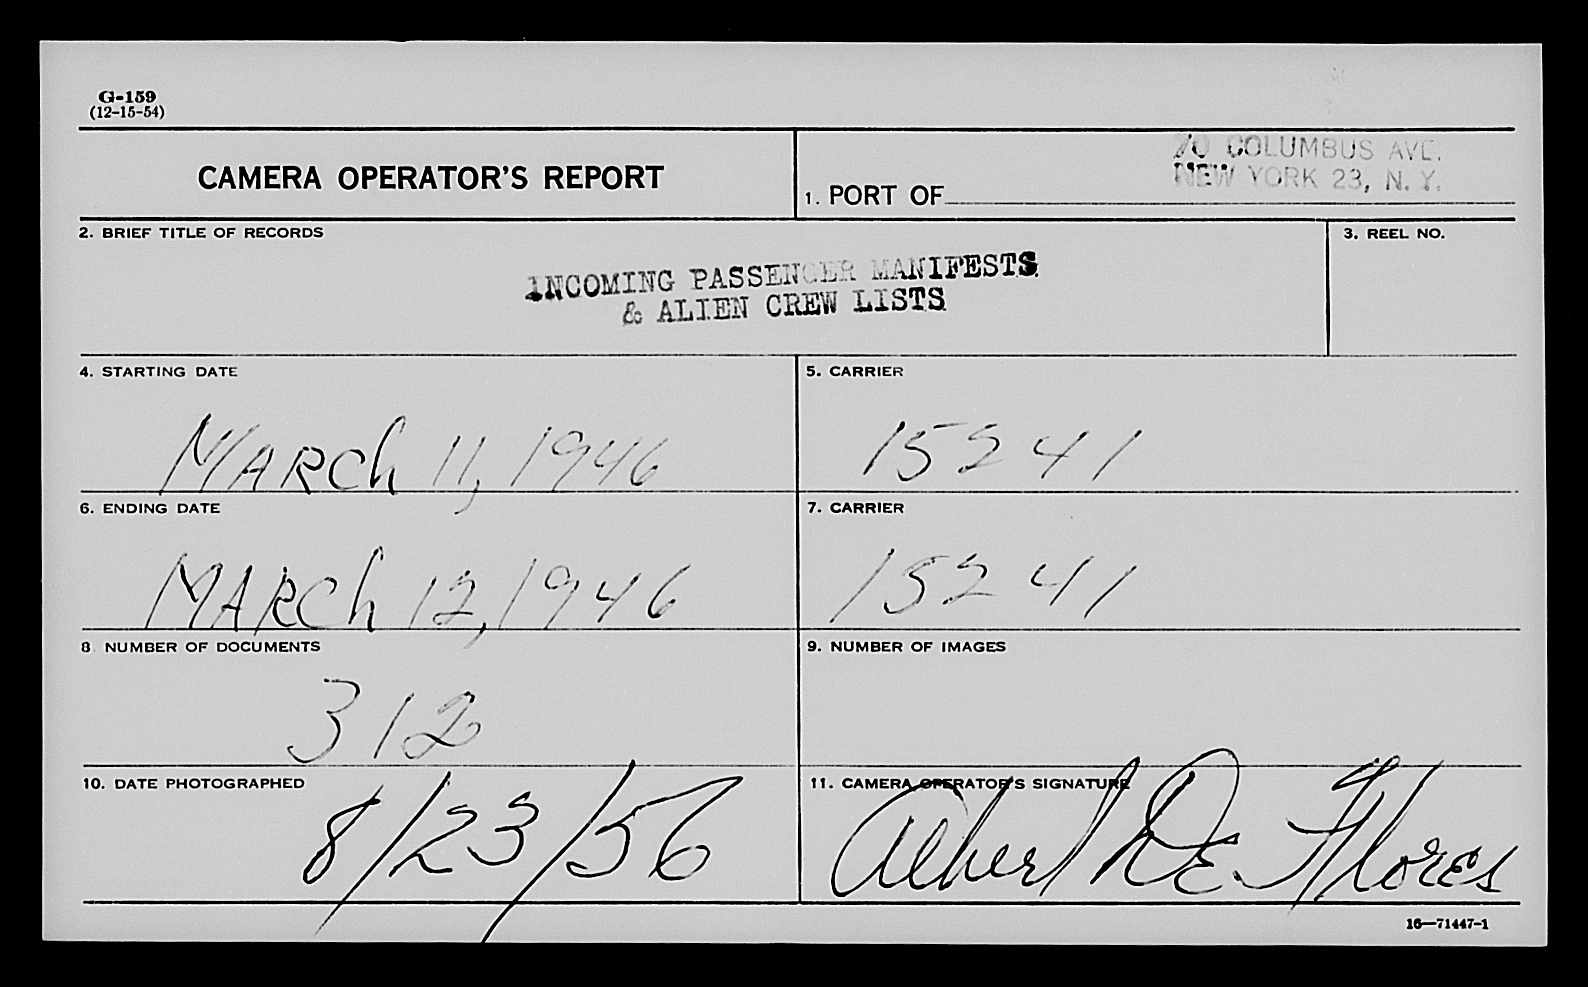 G-159
(12-15-54)
CAMERA OPERATOR'S REPORT
1. PORT OF
70 COLUMBUS AVE.
NEW YORK 23, N. Y.
2. BRIEF TITLE OF RECORDS
INCOMING PASSENGER MANIFESTS
& ALIEN CREW LISTS
3. REEL NO.
4. STARTING DATE
MARCh 11, 1946
5. CARRIER
15241
6. ENDING DATE
MARCh 12, 1946
7. CARRIER
15241
8. NUMBER OF DOCUMENTS
312
9. NUMBER OF IMAGES
10. DATE PHOTOGRAPHED
8/23/56
11. CAMERA OPERATOR'S SIGNATURE
Albert De Flores
16—71447-1